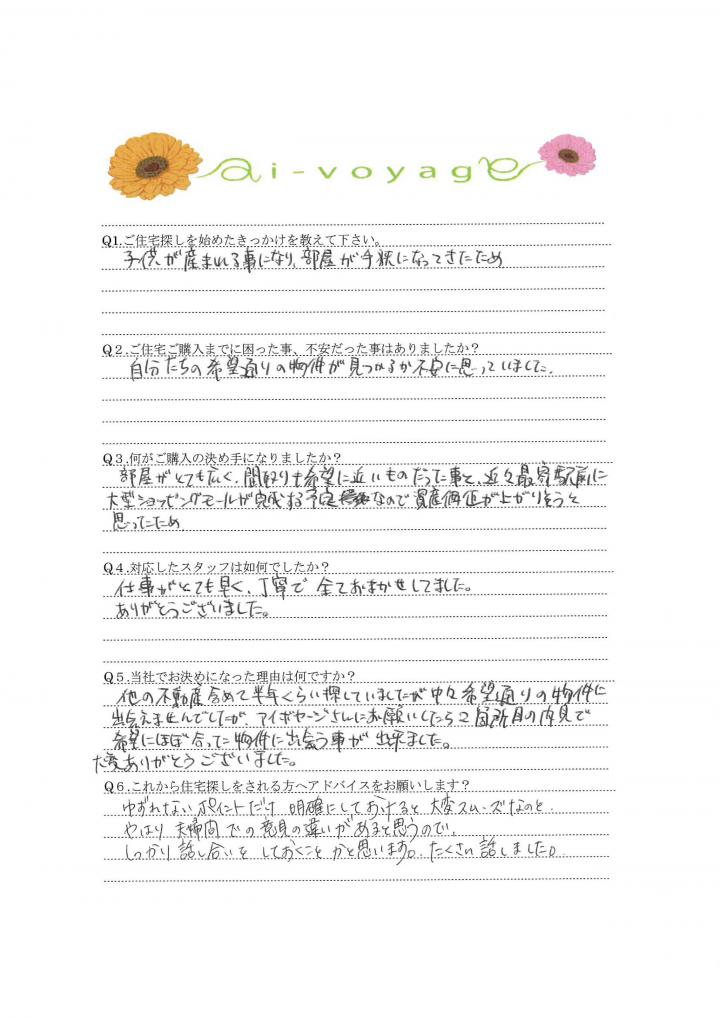 ai-voyage
Q1.ご住宅探しを始めたきっかけを教えて下さい。
子供が産まれる事になり、部屋が手狭になってきたため
Q2.ご住宅ご購入までに困った事、不安だった事はありましたか？
自分たちの希望通りの物件が見つかるか不安に思っていました。
Q3.何がご購入の決め手になりましたか？
部屋がとても広く、間取りも希望に近いものだった事と、近々最寄駅前に
大型ショッピングモールが完成する予定なので資産価値が上がりそうと
思ったため
Q4.対応したスタッフは如何でしたか？
仕事がとても早く、丁寧で全ておまかせしてました。
ありがとうございました。
Q5.当社でお決めになった理由は何ですか？
他の不動産含めて半年くらい探していましたが中々希望通りの物件に
出会えませんでしたが、アイボヤージさんにお願いしたら2箇所目の内見で
希望にほぼ合った物件に出会う事が出来ました。
大変ありがとうございました。
Q6.これから住宅探しをされる方へアドバイスをお願いします？
ゆずれないポイントだけ明確にしておけると大変スムーズなのと、
やはり夫婦間での意見の違いがあると思うので、
しっかり話し合いをしておくことかと思います。たくさん話しました。